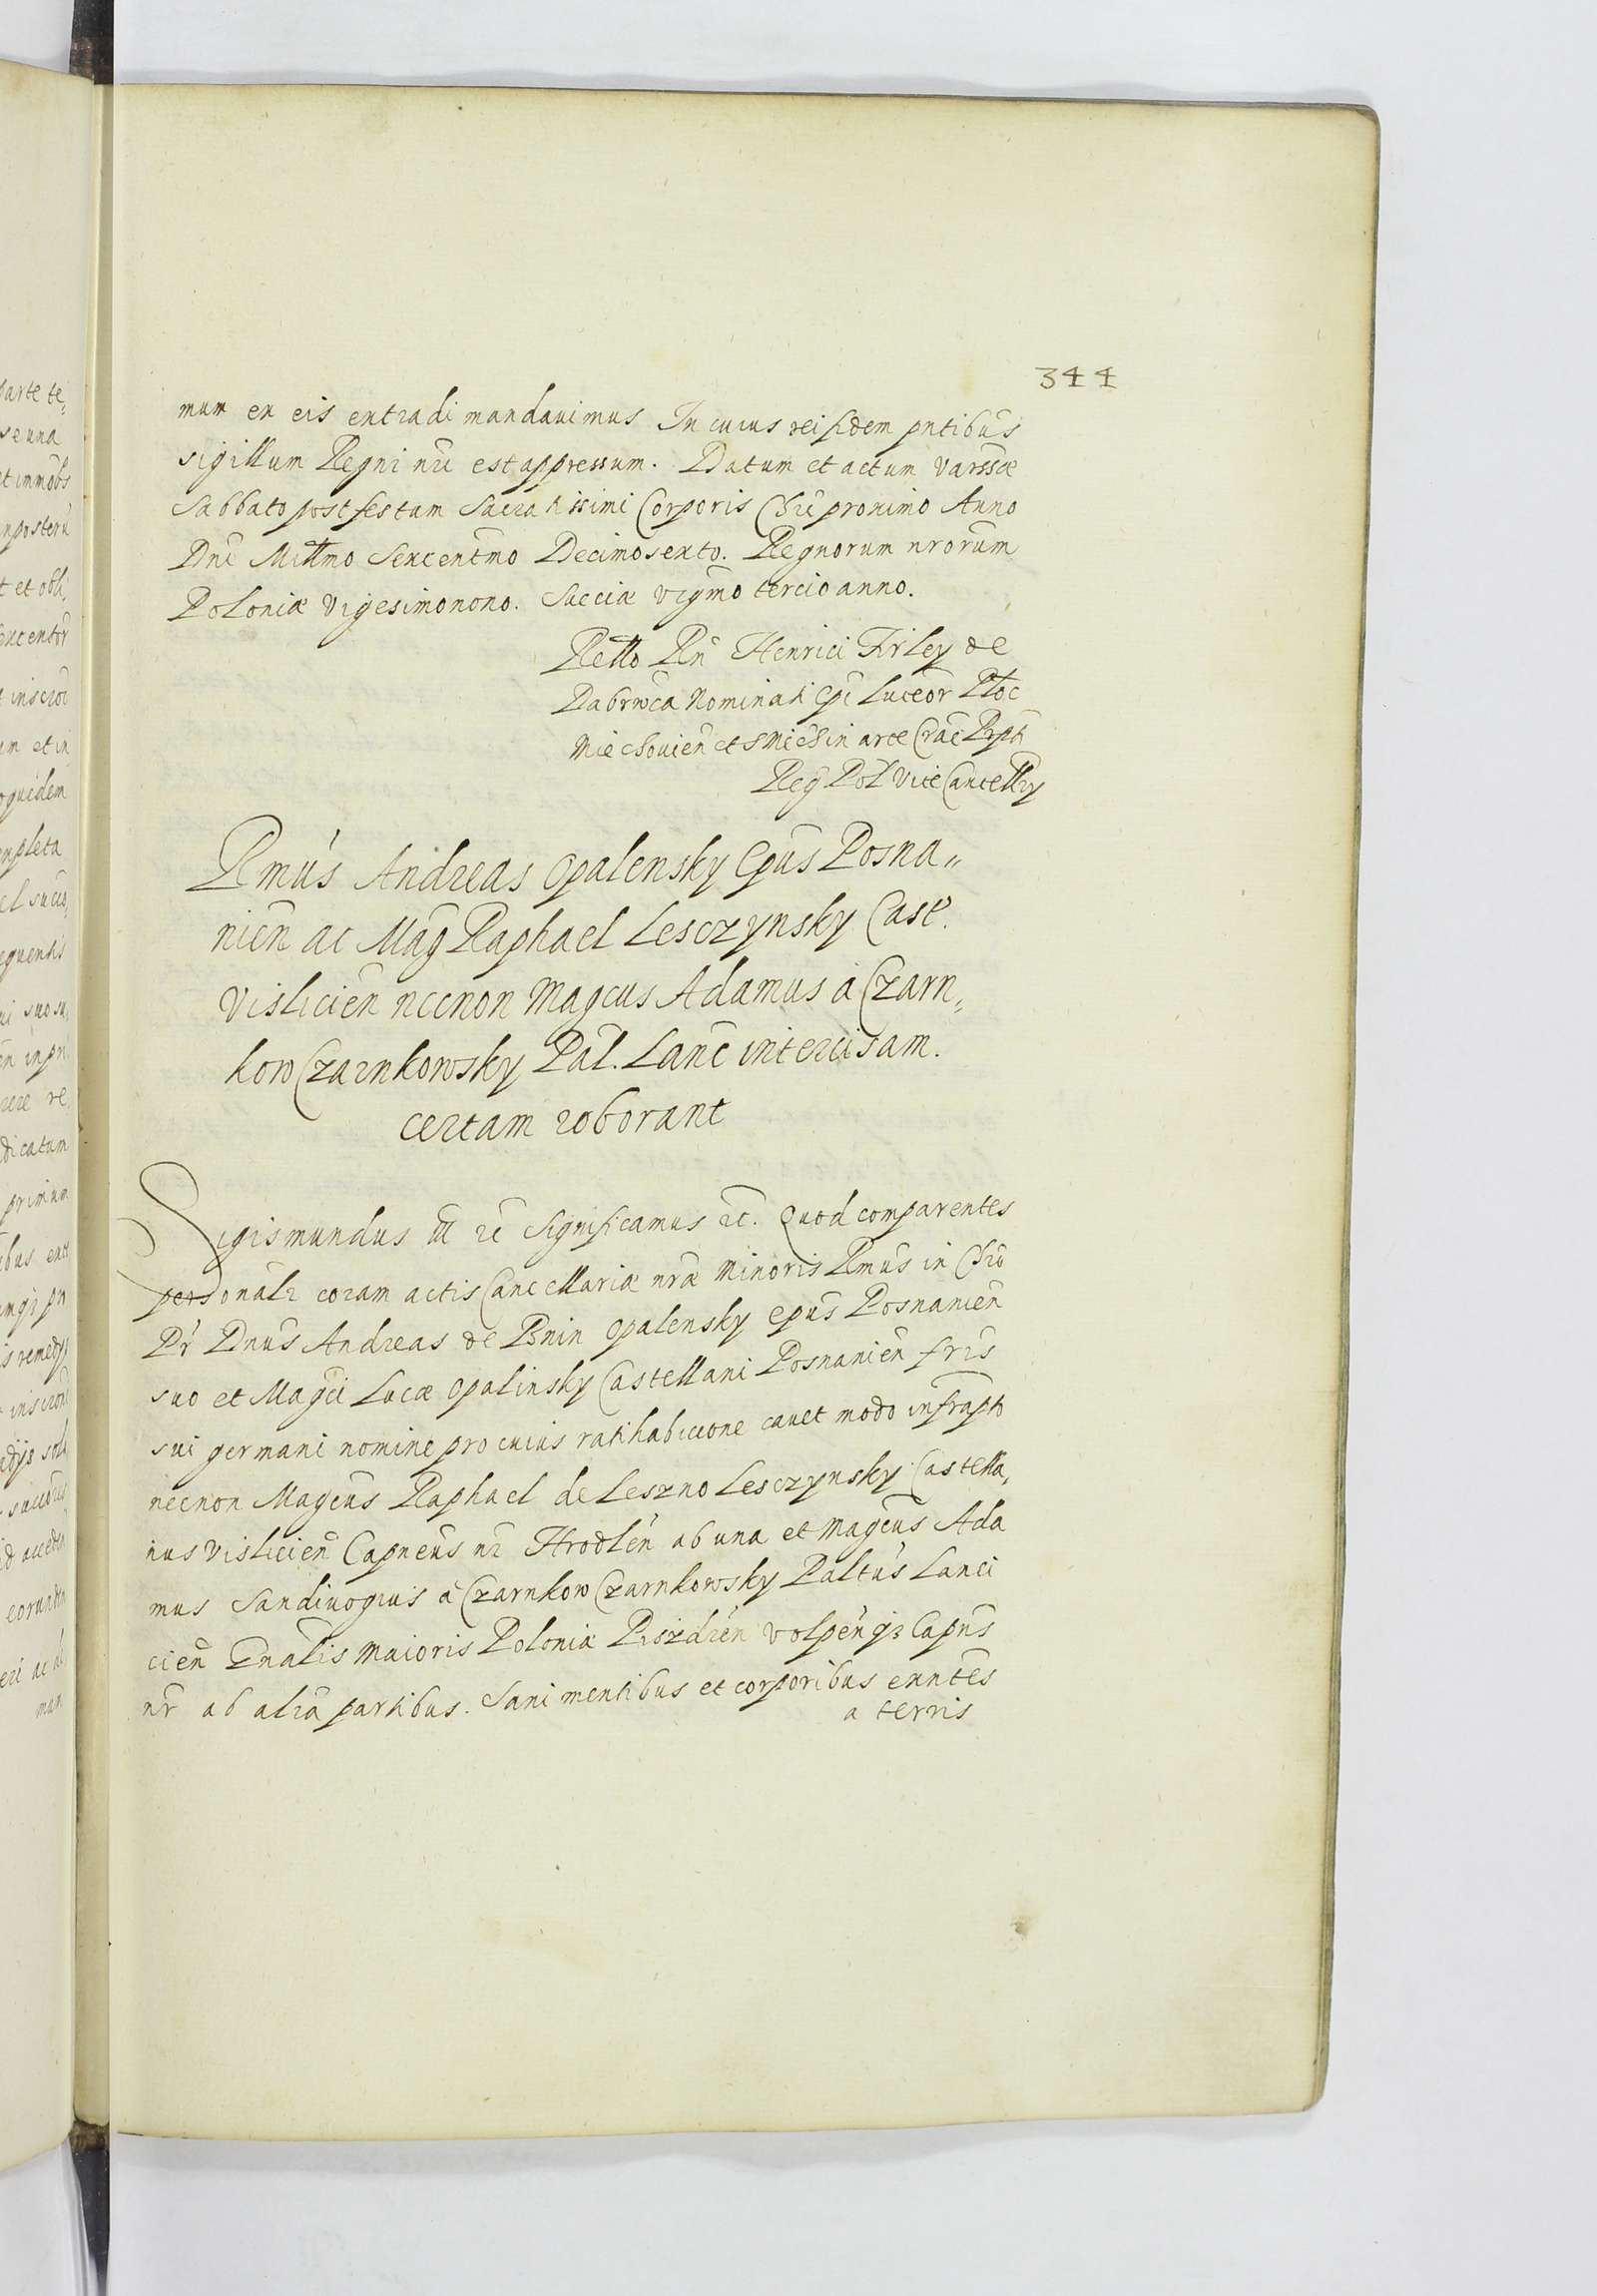 344
mum ex eis extradi mandauimus In cuius rei fidem pntibus
sigillum Regni nrĩ est appressum. Datum et actum Varssae
Sabbato post festum Sacratissimi Corporis Chri proximo Anno
Dni Millmo Sexcentmo Decimosexto. Regnorum nrorum
Poloniæ Vigesimonono. Sueciæ vigmo tercio anno.
Rello Rñ Henrici Firley de
Dabrowca Nominati Epi Luceor Ploc
Miechouien et S Mich in arce Crac Prpti
Reg Pol Vice Cancellry
Rmus Andreas Opalensky Epus Posna„
nien ac Mag Raphael Lesczynsky Cast.
Vislicien necnon Magcus Adamus à Czarn,
kow Czarnkowsky Pal. Lanc intercisam.
certam roborant
Sigismundus III rc Significamus rc. Quod comparentes
personalr coram actis Cancellariæ nræ Minoris Rmus in Chro
Pr Dnus Andreas de Bnin Opalensky epus Posnanien
suo et Magci Lucæ Opalinsky Castellani Posnanien fris
sui germani nomine pro cuius ratihabicione cauet modo infrapto
necnon Magcus Raphael de Leszno Lesczynsky Castella,
nus Vislicien Capneus nr Hrodlen ab una et Magcus Ada
mus Sandiuogius à Czarnkow Czarnkowsky Paltus Lanci
cien Gnalis Maioris Poloniæ Piszdren Volpen qz Capns
nr ab alia partibus. Sani mentibus et corporibus exntes
a terris